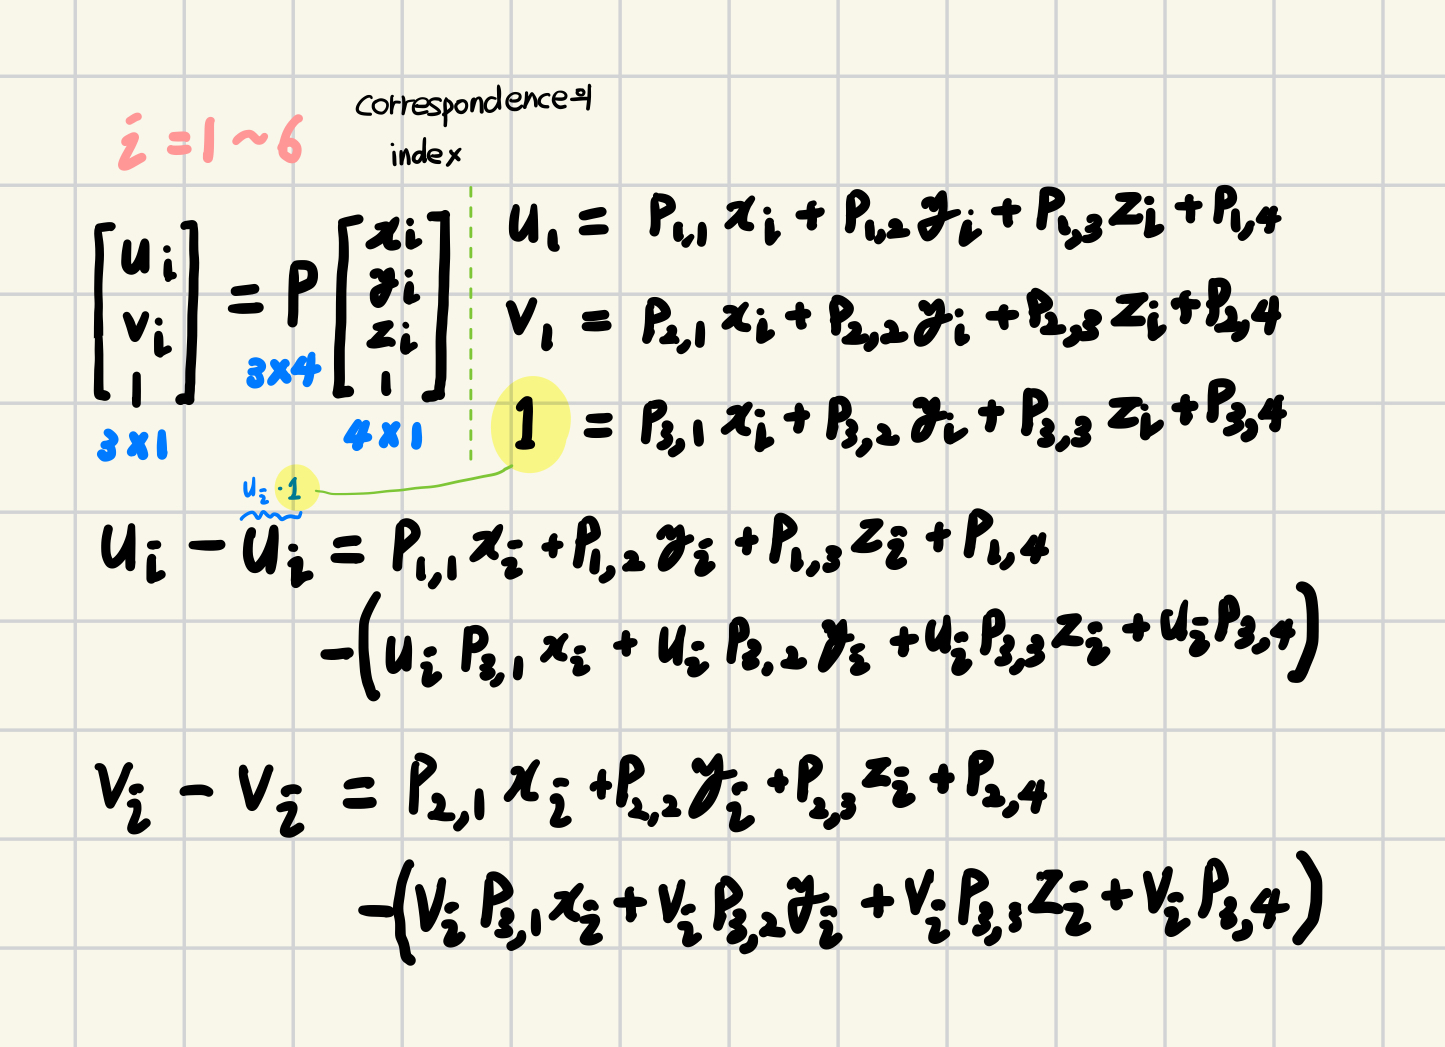 correspondence의
i = 1 ~ 6
index
[u_i v_i 1] = P [x_i y_i z_i 1]
3×1
3×4
4×1
u_1 = P_{1,1} x_i + P_{1,2} y_i + P_{1,3} z_i + P_{1,4}
v_1 = P_{2,1} x_i + P_{2,2} y_i + P_{2,3} z_i + P_{2,4}
1 = P_{3,1} x_i + P_{3,2} y_i + P_{3,3} z_i + P_{3,4}
u_i · 1
u_i - u_i = P_{1,1} x_i + P_{1,2} y_i + P_{1,3} z_i + P_{1,4}
-(u_i P_{3,1} x_i + u_i P_{3,2} y_i + u_i P_{3,3} z_i + u_i P_{3,4})
v_i - v_i = P_{2,1} x_i + P_{2,2} y_i + P_{2,3} z_i + P_{2,4}
-(v_i P_{3,1} x_i + v_i P_{3,2} y_i + v_i P_{3,3} z_i + v_i P_{3,4})